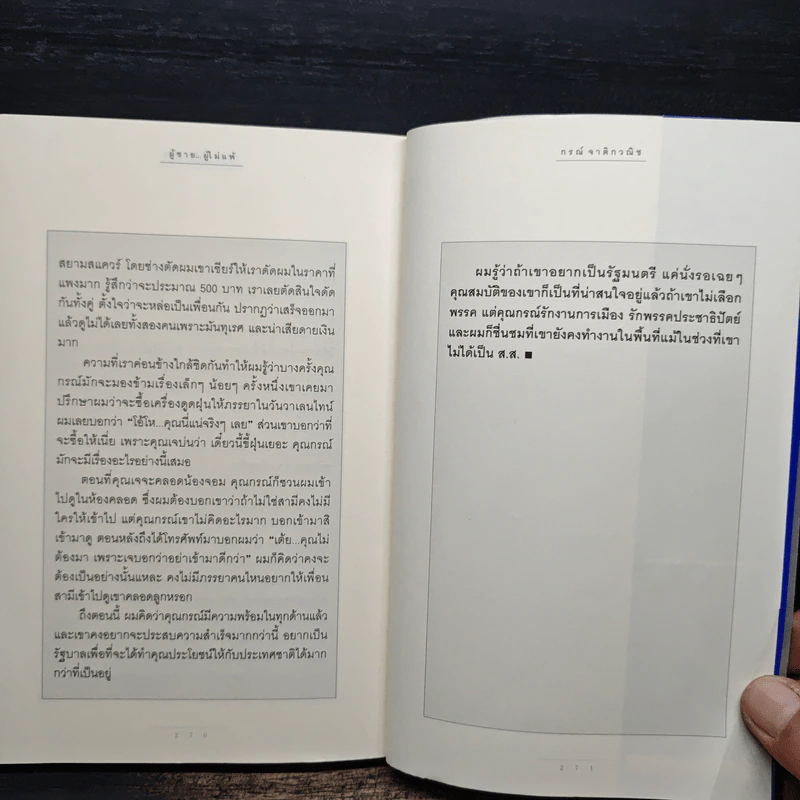 ผู้ชาย...ผู้ไม่แพ้
สยามสแควร์ โดยช่างตัดผมเขาเชียร์ให้เราดัดผมในราคาที่
แพงมาก รู้สึกว่าจะประมาณ 500 บาท เราเลยตัดสินใจดัด
กันทั้งคู่ ตั้งใจว่าจะหล่อเป็นเพื่อนกัน ปรากฏว่าเสร็จออกมา
แล้วดูไม่ได้เลยทั้งสองคนเพราะมันทุเรศ และน่าเสียดายเงิน
มาก
ความที่เราค่อนข้างใกล้ชิดกันทำให้ผมรู้ว่าบางครั้งคุณ
กรณ์มักจะมองข้ามเรื่องเล็กๆ น้อยๆ ครั้งหนึ่งเขาเคยมา
ปรึกษาผมว่าจะซื้อเครื่องดูดฝุ่นให้ภรรยาในวันวาเลนไทน์
ผมเลยบอกว่า “โอ้โห...คุณนี่แน่จริงๆ เลย” ส่วนเขาบอกว่าที่
จะซื้อให้เนี่ย เพราะคุณเจบ่นว่า เดี๋ยวนี้ขี้ฝุ่นเยอะ คุณกรณ์
มักจะมีเรื่องอะไรอย่างนี้เสมอ
ตอนที่คุณเจจะคลอดน้องจอม คุณกรณ์ก็ชวนผมเข้า
ไปดูในห้องคลอด ซึ่งผมต้องบอกเขาว่าถ้าไม่ใช่สามีคงไม่มี
ใครให้เข้าไป แต่คุณกรณ์เขาไม่คิดอะไรมาก บอกเข้ามาสิ
เข้ามาดู ตอนหลังถึงได้โทรศัพท์มาบอกผมว่า “เต้ย...คุณไม่
ต้องมา เพราะเจบอกว่าอย่าเข้ามาดีกว่า” ผมก็คิดว่าคงจะ
ต้องเป็นอย่างนั้นแหละ คงไม่มีภรรยาคนไหนอยากให้เพื่อน
สามีเข้าไปดูเขาคลอดลูกหรอก
ถึงตอนนี้ ผมคิดว่าคุณกรณ์มีความพร้อมในทุกด้านแล้ว
และเขาคงอยากจะประสบความสำเร็จมากกว่านี้ อยากเป็น
รัฐบาลเพื่อที่จะได้ทำคุณประโยชน์ให้กับประเทศชาติได้มาก
กว่าที่เป็นอยู่
270
กรณ์ จาติกวณิช
ผมรู้ว่าถ้าเขาอยากเป็นรัฐมนตรี แค่นั่งรอเฉยๆ
คุณสมบัติของเขาก็เป็นที่น่าสนใจอยู่แล้วถ้าเขาไม่เลือก
พรรค แต่คุณกรณ์รักงานการเมือง รักพรรคประชาธิปัตย์
และผมก็ชื่นชมที่เขายังคงทำงานในพื้นที่แม้ในช่วงที่เขา
ไม่ได้เป็น ส.ส. ■
271